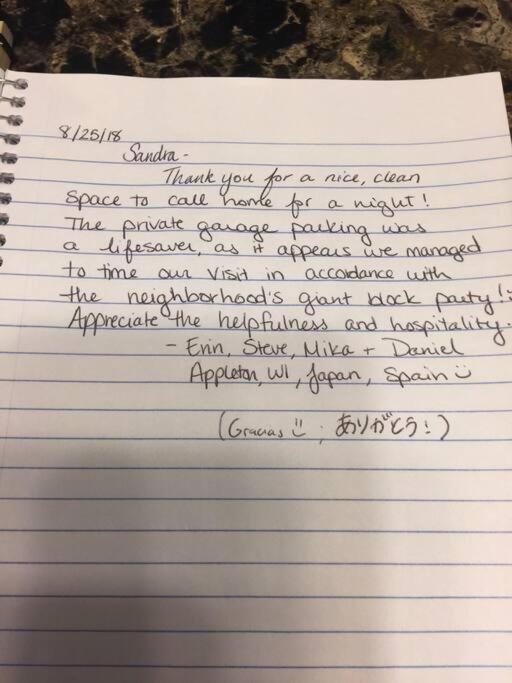 8/25/18
Sandra -
Thank you for a nice, clean
space to call home for a night!
The private garage parking was
a lifesaver, as it appears we managed
to time our visit in accordance with
the neighborhood's giant block party!:
Appreciate the helpfulness and hospitality.
- Erin, Steve, Mika + Daniel
Appleton, WI, Japan, Spain :)
(Gracias :) ; ありがとう!)